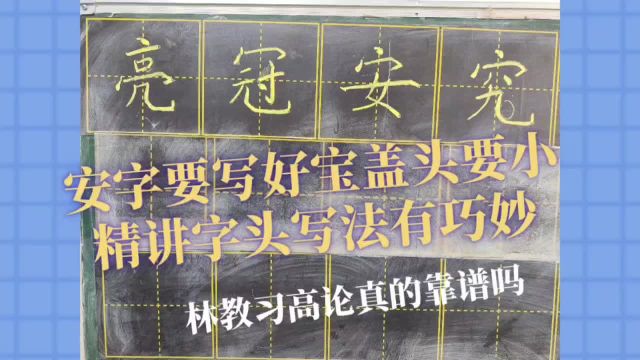 亮冠安究
安字要写好宝盖头要小
精讲字头写法有巧妙
林教习高论真的靠谱吗